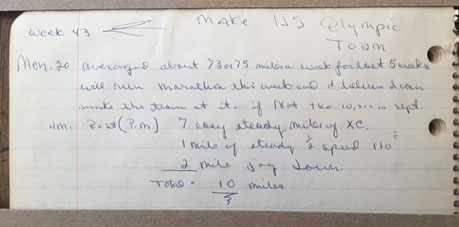 week 43 MAKE US Olympic
TEAM
Mon. 20 averaged about 73 or 75 miles a week for last 5 weeks
will run marathon this weekend I believe I can
make the team at it. if Not the 10,000 in sept.
AM. Rest (P.M) 7 easy steady miles of XC.
1 mile of steady ½ speed 110
2 mile jog down.
Total = 10 miles